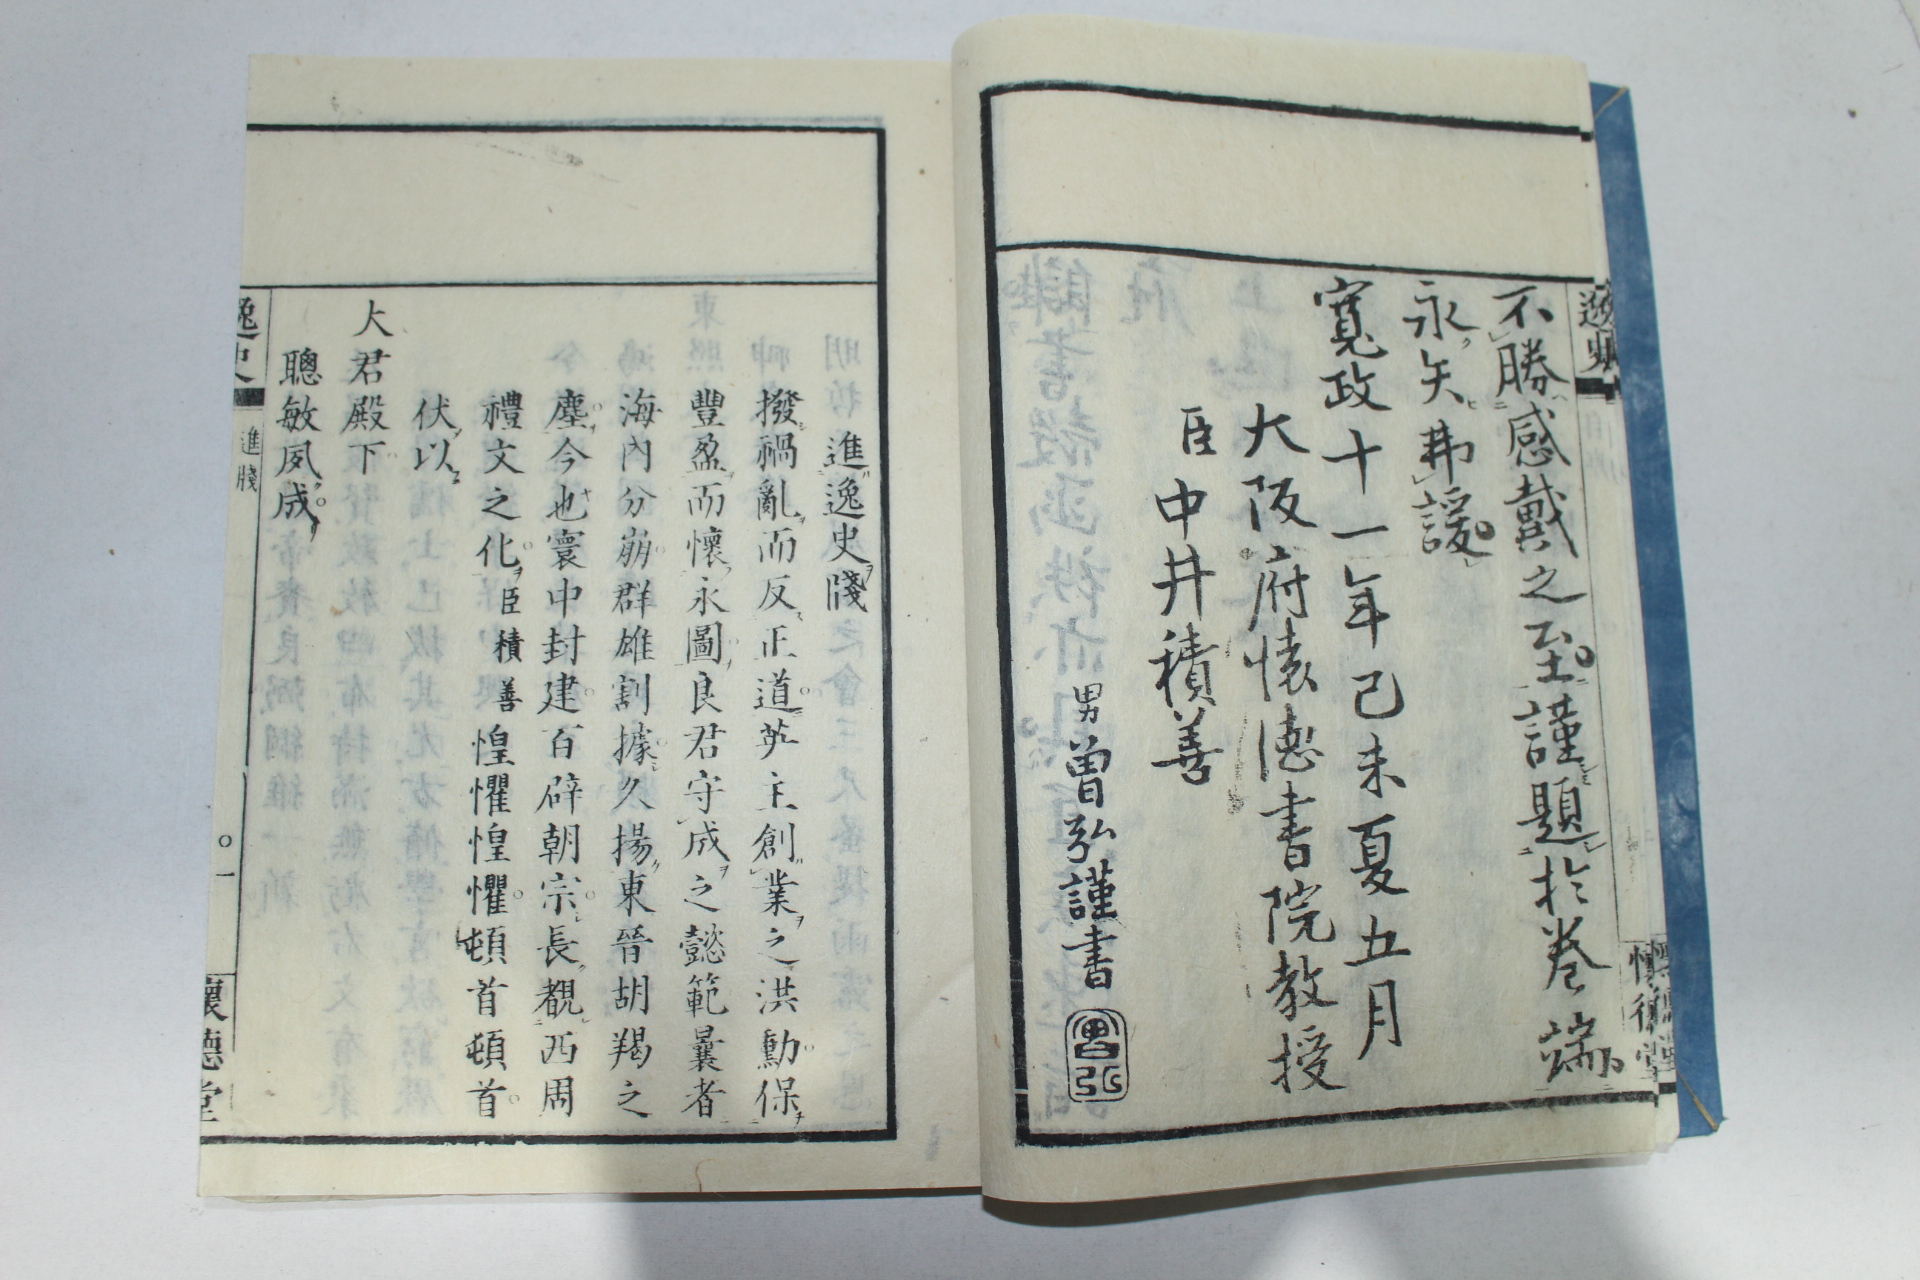 不勝感戴之至謹題於卷端
永矢弗諼
寬政十一年己未夏五月
大阪府懷德書院教授
臣中井積善
男曾弘謹書
進逸史牋
撥禍亂而反正道英主創業之洪勳保
豐盈而懷永圖良君守成之懿範曩者
海內分崩群雄割據久揚東晉胡羯之
塵今也寰中封建百辟朝宗長覩西周
禮文之化臣積善惶懼惶懼頓首頓首
伏以
大君殿下
聰敏夙成
逸史
進牋
一
懷德堂